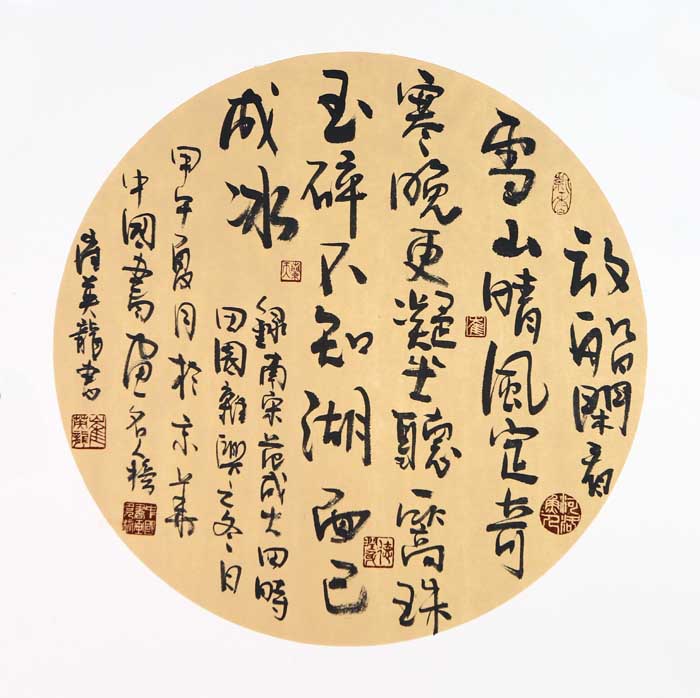 放船閑看
雪山晴風定奇
寒晚更凝坐聽一篙珠
玉碎不知湖面已
成冰
錄南宋范成大四時
田園雜興之冬日
甲午夏月於京華
中國書畫名人榜
崔英龍書